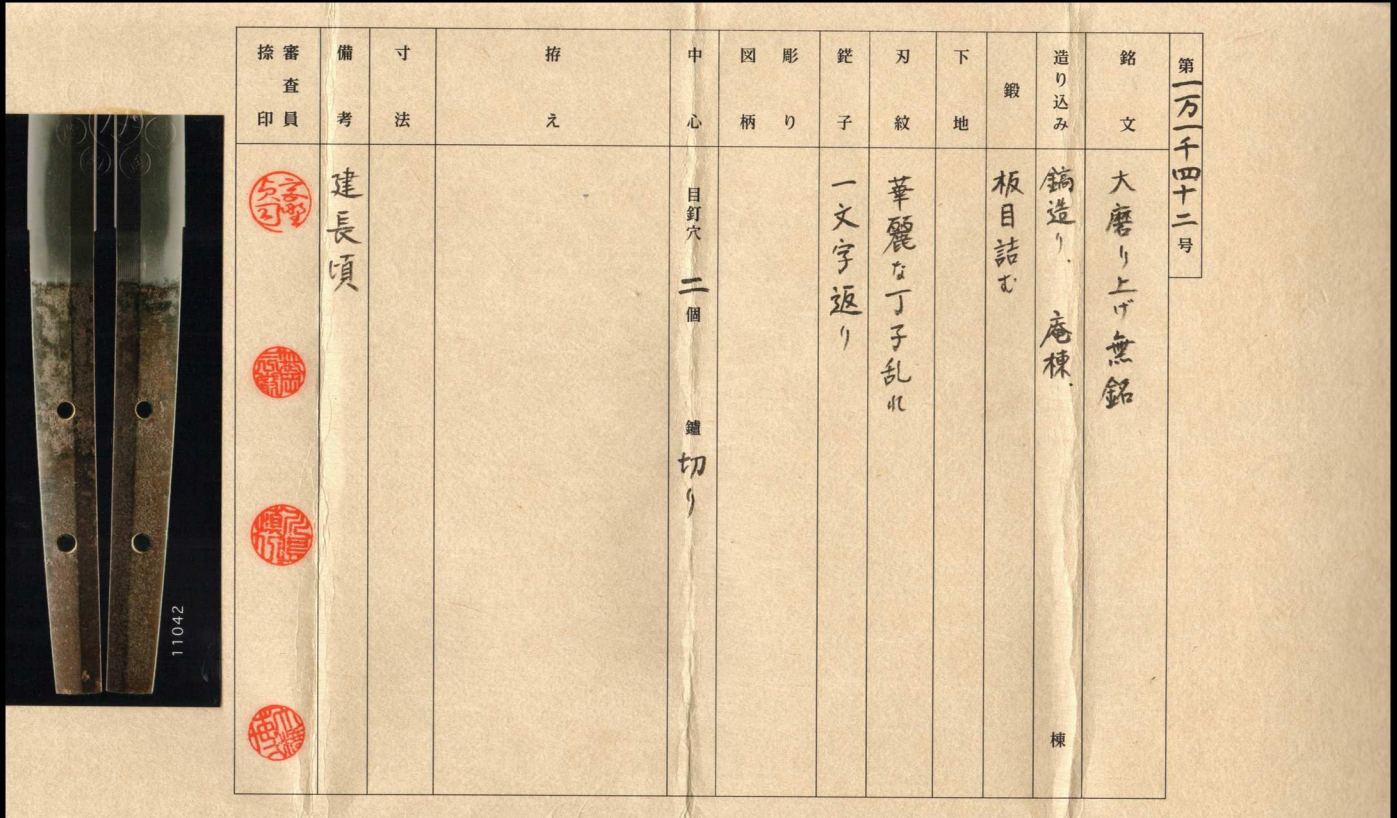 第一万一千四十二号
銘文 大磨り上げ無銘
造り込み 鎬造り、 庵棟、 棟
鍛 板目詰む
下地
刃紋 華麗な丁子乱れ
鋩子 一文字返り
彫り
図柄
中心 目釘穴 二個 鑢 切り
拵え
寸法
備考 建長頃
審査員
捺印
11042